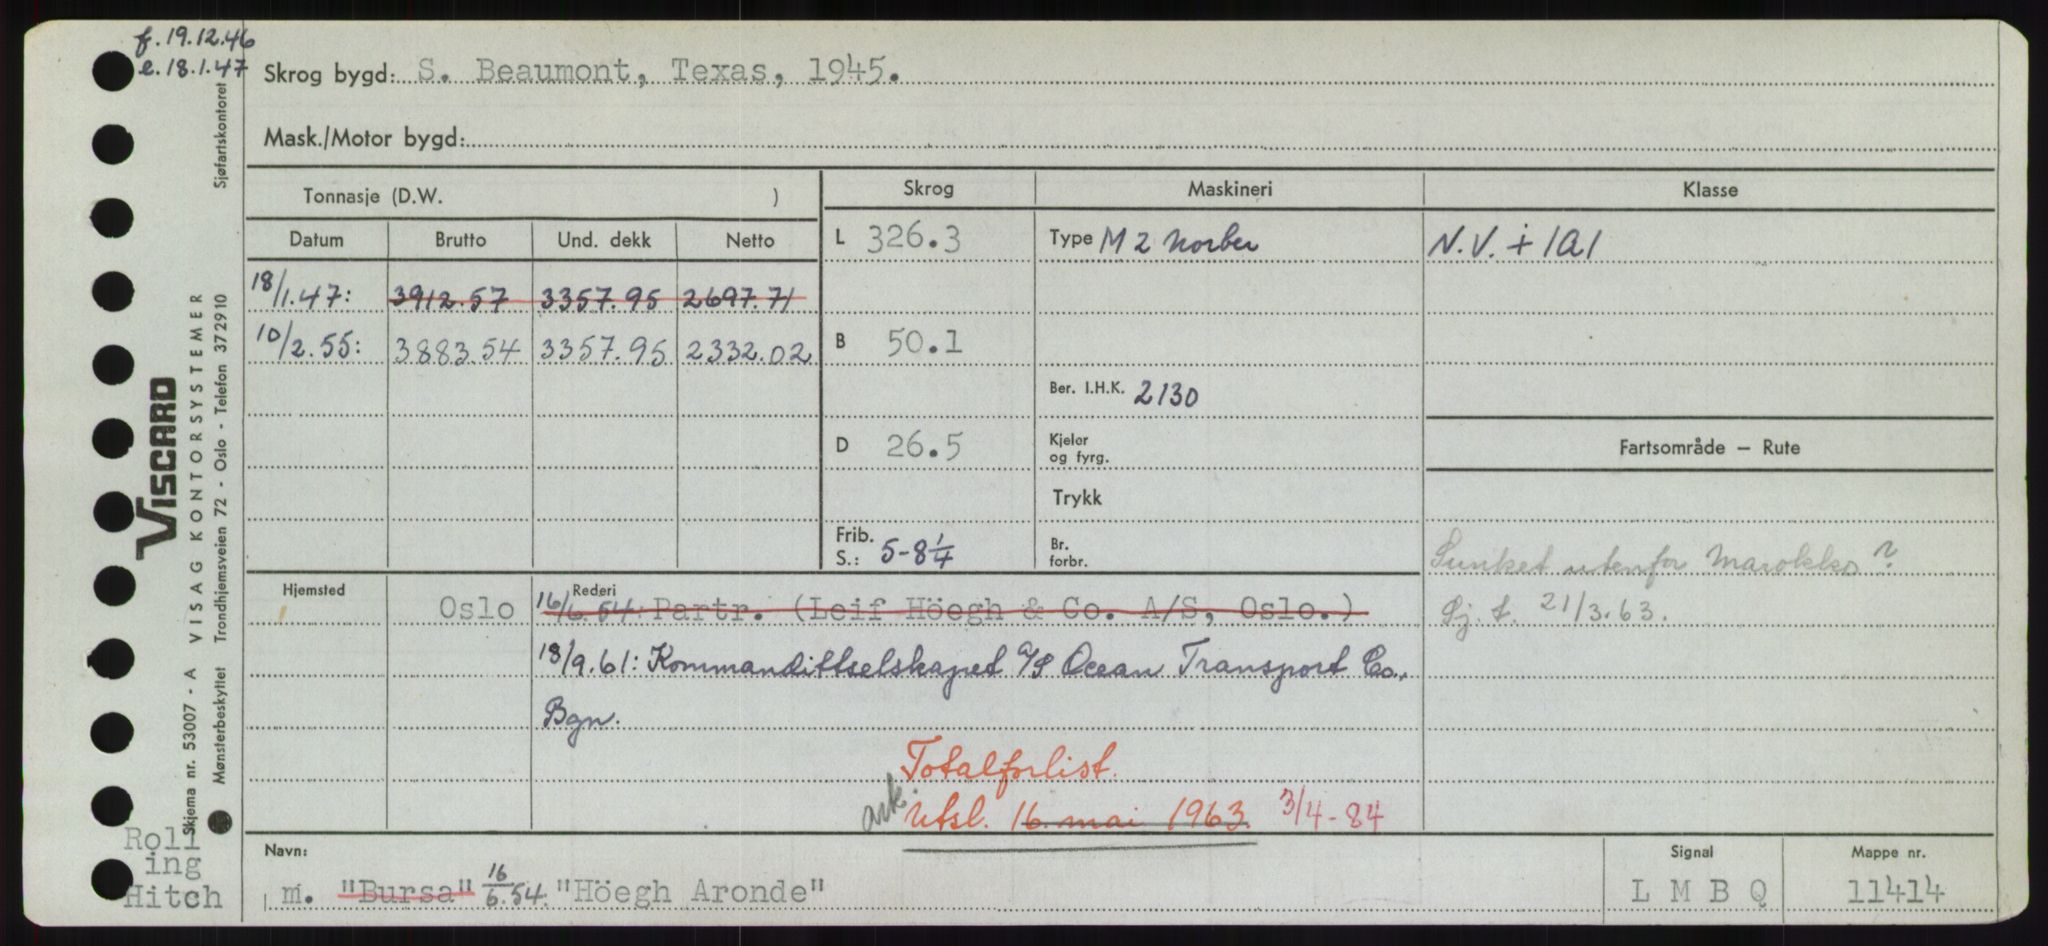 f. 19.12.46
e. 18.1.47
Skrog bygd: S. Beaumont, Texas, 1945.
Mask./Motor bygd:
Tonnasje (D.W. )
Datum Brutto Und. dekk Netto
18/1.47: 3912.57 3357.95 2697.71
10/2.55: 3883.54 3357.95 2332.02
Skrog Maskineri Klasse
L 326.3 Type M 2 Norber N.V. + 1A1
B 50.1
Ber. I.H.K. 2130
D 26.5 Kjeler
og fyrg.
Trykk
Frib.
S.: 5-8¼ Br.
forbr.
Fartsområde — Rute
Sunket utenfor Marokko?
Sj. t. 21/3.63.
Hjemsted Rederi
Oslo 16/6.54: Partr. (Leif Höegh & Co. A/S, Oslo.)
18/9.61: Kommandittselskapet A/S Ocean Transport Co.,
Bgn.
Totalforlist.
ark. Utsl. 16. mai 1963. 3/4-84
Navn: Signal Mappe nr.
m. "Bursa" 16/6.54: "Höegh Aronde" L M B Q 11414
Roll
ing
Hitch
VISCARD
Skjema nr. 53007 - A VISAG KONTORSYSTEMER
Mønsterbeskyttet Trondhjemsveien 72 - Oslo - Telefon 372910 Sjøfartskontoret